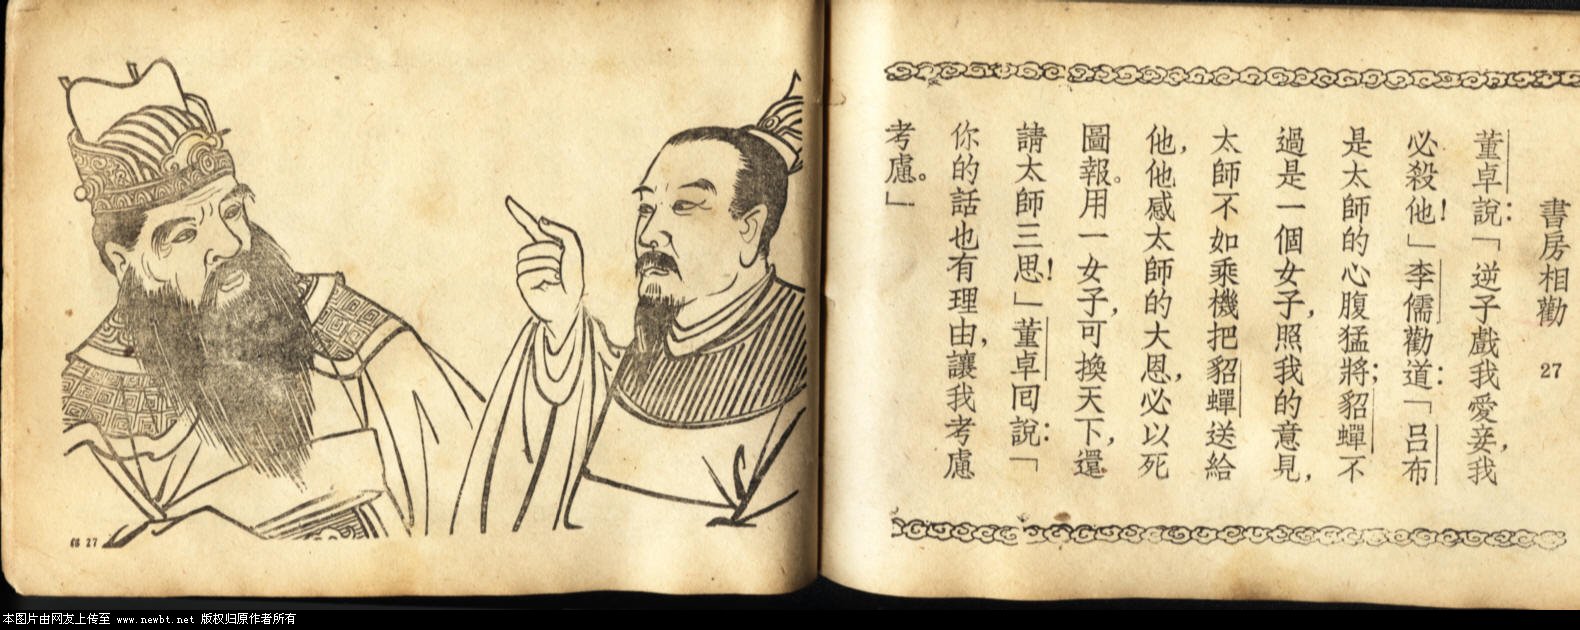 書房相勸
27
董卓說：「逆子戲我愛妾，我
必殺他！」李儒勸道：「呂布
是太師的心腹猛將；貂蟬不
過是一個女子，照我的意見，
太師不如乘機把貂蟬送給
他，他感太師的大恩，必以死
圖報。用一女子，可換天下，還
請太師三思！」董卓回說：「
你的話也有理由，讓我考慮
考慮。」
貂 27
本图片由网友上传至 www.newbt.net 版权归原作者所有